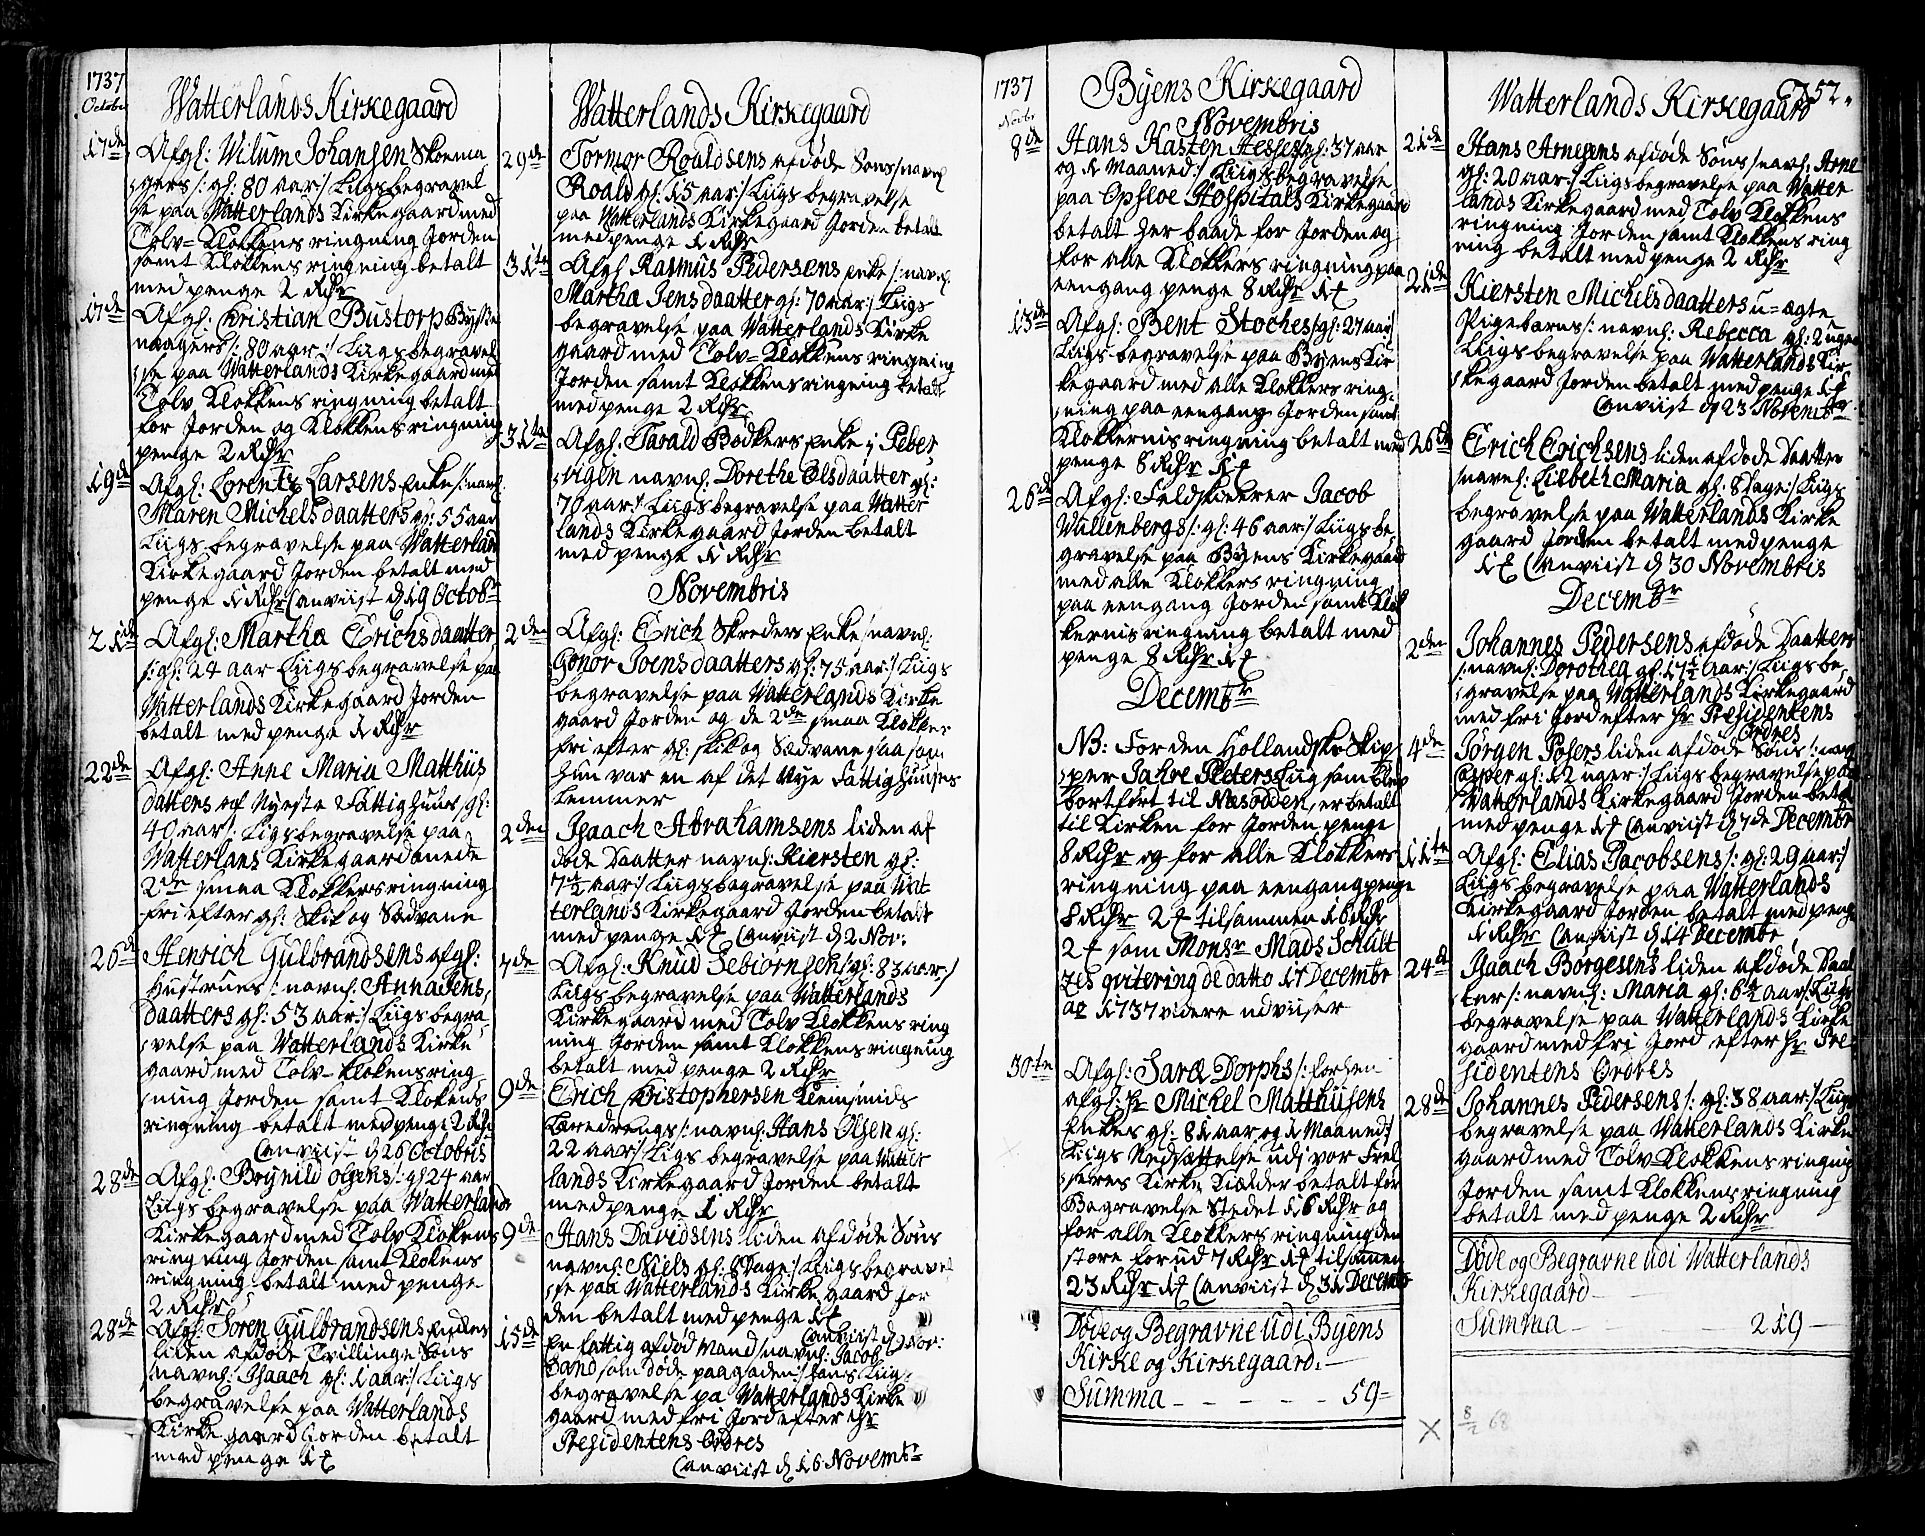 1737
Octobr
Watterlands Kirkegaard
17de
Afgl: Wilum Johansen Skoema
gers /: gl: 80 aar :/ Liigsbegravel
se paa Watterlands Kirkegaard med
Tolv= Klokkens ringning Jorden
samt Klokkens ringning betalt
med penge 2 Rdr
17de
Afgl: Christian Bustorp Bysse
maagers /: 80 aar :/ Liigsbegravel
se paa Watterlands Kirkegaard med
Tolv Klokkens ringning betalt
for Jorden og Klokkens ringning
penge 2 Rdr
19de
Afgl: Lorentz Larsens Enke /: navnl:
Maren Michelsdaatters gl: 55 aar
Liigs begravelse paa Watterland
Kirkegaard Jorden betalt med
penge 1 Rdr anviist d 19 Octobr
21de
Afgl: Martha Erichsdaatter
/: gl: 24 aar Liigsbegravelse paa
Watterlands Kirkegaard Jorden
betalt med penge 1 Rdr
22de
Afgl: Anne Maria Matthus
dattens af Nyeste Fattighuus /gl:
40 aar /: Ligsbegravelse paa
Watterlans Kirkegaard mede
2de smaa Klokkers ringning
fri efter gl: Skik og Sædvane
26de
Henrich Gulbrandsens afgl:
Hustrues /: navnl: Anna Jens
daatters gl: 53 aar :/ Liigsbegra
velse paa Watterlands Kirke
gaard med Tolv= Klokensring
ning Jorden samt Klokens
ringning betalt med penge 2 Rdr
anviist d 26 Octobris
28de
Afgl: Brynild Olsens /: gl 24 aar
Liigsbegravelse paa Watterlands
Kirkegaard med Tolv Klokens
ringning Jorden samt Klokens
ringning betalt med penge
2 Rdr
28de
Afgl: Soren Gulbrandsens Enckes
liden afdøde Trillinge Søns
/navnl: Isaach gl: 1 aar :/ Liigs
begravelse paa Watterlands
Kirkegaard Jorden betalt
med penge 1 f
Watterlands Kirkegaard
29de
Tormor Roaldsens afdøde Søns /navnl
Roald gl: 15 aar :/ Liigs begravelse
paa Watterlands Kirkegaard Jorden betalt
med penge 1 Rdr
31te
Afgl Rasmus Pedersens Enke /: navnl:
Martha Jensdaatter gl: 70 aar :/ Liigs
begravelse paa Watterlands Kirke
gaard med Tolv= Klokkens ringning
Jorden samt Klokkens ringning betalt
med penge 2 Rdr
31te
Afgl: Tarald Bødkers Enke i Peber
vigen navnl: Dorethe Olsdaatter gl:
70 aar :/ Liigsbegravelse paa Watter
lands Kirkegaard Jorden betalt
med penge 1 Rdr
Novembris
2den
Afgl: Erich Skreders Enke /navnl:
Gonor Joensdaatters gl: 75 aar :/ Liigs
begravelse paa Watterlands Kirke
gaard Jorden og de 2de smaa Klokker
fri efter gl: skik og Sædvane saasom
hun var en af det Nye Fattighuuses
Lemmer
2den
Isaach Abrahamsens liden af
døde Daatter navnl: Kiersten gl:
7½ aar :/ Liigsbegravelse paa Wat
terlands Kirkegaard Jorden betalt
med penge 1 f anviist d 2 Nov:
7de
Afgl: Knud Sebiørnsen /gl: 83 aar :/
Liigsbegravelse paa Watterlands
Kirkegaard med Tolv Klokkens ring
ning Jorden samt Klokkens ringning
betalt med penge 2 Rdr
9de
Erich Christophersen Kleinsmids
Læredrengs /: navnl: Hans Olsen gl:
22 aar :/ Ligs begravelse paa Watter
lands Kirkegaard Jorden betalt
med penge 1 Rdr
9de
Hans Davidsens liden afdøde Søns
navnl: Niels gl: 6 Dage :/ Liigsbegravel
se paa Watterlands Kirkegaard Jor
den betalt med penge 1 f
anviist d Nov:
15de
En fattig afdød Mand /navnl: Jacob
Sand som døde paa gaden :/ hans Liigs
begravelse pa Watterlands Kirke
gaard med fri Jord efter Hr
Presidentens Ordres
anviist d 16 Novembr
1737
Novbr
Byens Kirkegaard
Novembris
8de
Hans Kasten Hesses /gl: 37 aar
og 1 Maaned :/ Liigsbegravelse
paa Opsloe Hospitals Kirkegaard
betalt her baade for Jorden og
for alle Klokkers ringning paa
eengang penge 8 Rdr 1 f
13de
Afgl: Bent Stoches /gl: 27 aar
Liigsbegravelse paa Byens Kir
kegaard med alle Klokkers ring
ning paa eengang Jorden samt
Klokkernis ringning betalt med
penge 8 Rdr 1 f
26de
Afgl: Feldskierer Jacob
Wallenbergs /: gl: 46 aar :/ Liigsbe
gravelse paa Byens Kirkegaard
med alle Klokkers ringning
paa eengang Jorden samt Klok
kernis ringning betalt med
penge 8 Rdr 1 f
Decembr
NB: For den Hollandske Skip
per Jahre Peters Liig som blev
bortført til Næsodden, er betalt
til Kirken for Jorden penge
8 Rdr og for alle Klokkers
ringning paa eengang penge
8 Rdr 2 f tilsammen 16 Rdr
2 f som Monsr Mads Schult
zes qvitering de datto 17 Decembr
ao 1737 videre udviiser
30te
Afgl: Saræ Dorphs /: forden
afgl: Hr Mickel Matthusens
Enkes gl: 81 aar og 1 Maaned :/
Liigs Nedsættelse udi vor Frel
seres Kirke Kielder betalt for
Begravelse Stedet 16 Rdr og
for alle Klokkers ringning den
store forud 7 Rdr 1 f tilsammen
23 Rdr 1 f anviist d 31 Decembr
Døde og Begravne udi Byens
Kirke og Kirkegaard. —
Summa - - - - - 59=
752.
Watterlands Kirkegaard
21de
Hans Arnesens afdøde Søns /navnl: Arne
gl: 20 aar :/ Liigsbegravelse paa Watter
lands Kirkegaard med Tolv Klokkens
ringning Jorden samt Klokkens ring
ning betalt med penge 2 Rdr
21de
Kiersten Michelsdaatters u=ægte
Pigebarns /: navnl: Rebecca gl: 2 uger
Liigsbegravelse paa Watterlands Kir
kegaard Jorden betalt med penge 1 f
anviist d 23 Novembr
26de
Erich Erichsens liden afdøde Daatter
/navnl: Lisbeth Maria gl: 8 Dage :/ Liigs
begravelse paa Watterlands Kirke
gaard Jorden betalt med penge
1 f anviist d 30 Novembris
Decembr
2den
Johannes Pedersens afdøde Daatters
/: navnl: Dorothea gl: 17½ Aar :/ Liigsbe
gravelse paa Watterlands Kirkegaard
med fri Jord efter Hr Presidentens
Ordres
4de
Jørgen Posers liden afdøde Søns /: navnl
Casper gl: 12 uger :/ Liigsbegravelse paa
Watterlands Kirkegaard Jorden betalt
med penge 1 f anviist d 7de Decembr
11te
Afgl: Elias Jacobsens /: gl: 29 aar :/
Liigsbegravelse paa Watterlands
Kirkegaard Jorden betalt med penge
1 Rdr anviist d 14 Decembr
24de
Isaach Borgesens liden afdøde Daat
ter /: navnl: Maria gl: 6½ aar :/ Liigs
begravelse paa Watterlands Kirke
gaard med fri Jord efter Hr Pre
sidentens Ordres
28de
Johannes Pedersens /: gl: 38 aar :/ Liigs
begravelse paa Watterlands Kirke
gaard med Tolv Klokkens ringning
Jorden samt Klokkens ringning
betalt med penge 2 Rdr
Døde og Begravne udi Watterlands
Kirkegaard —
Summa — 219 —
8/2 68